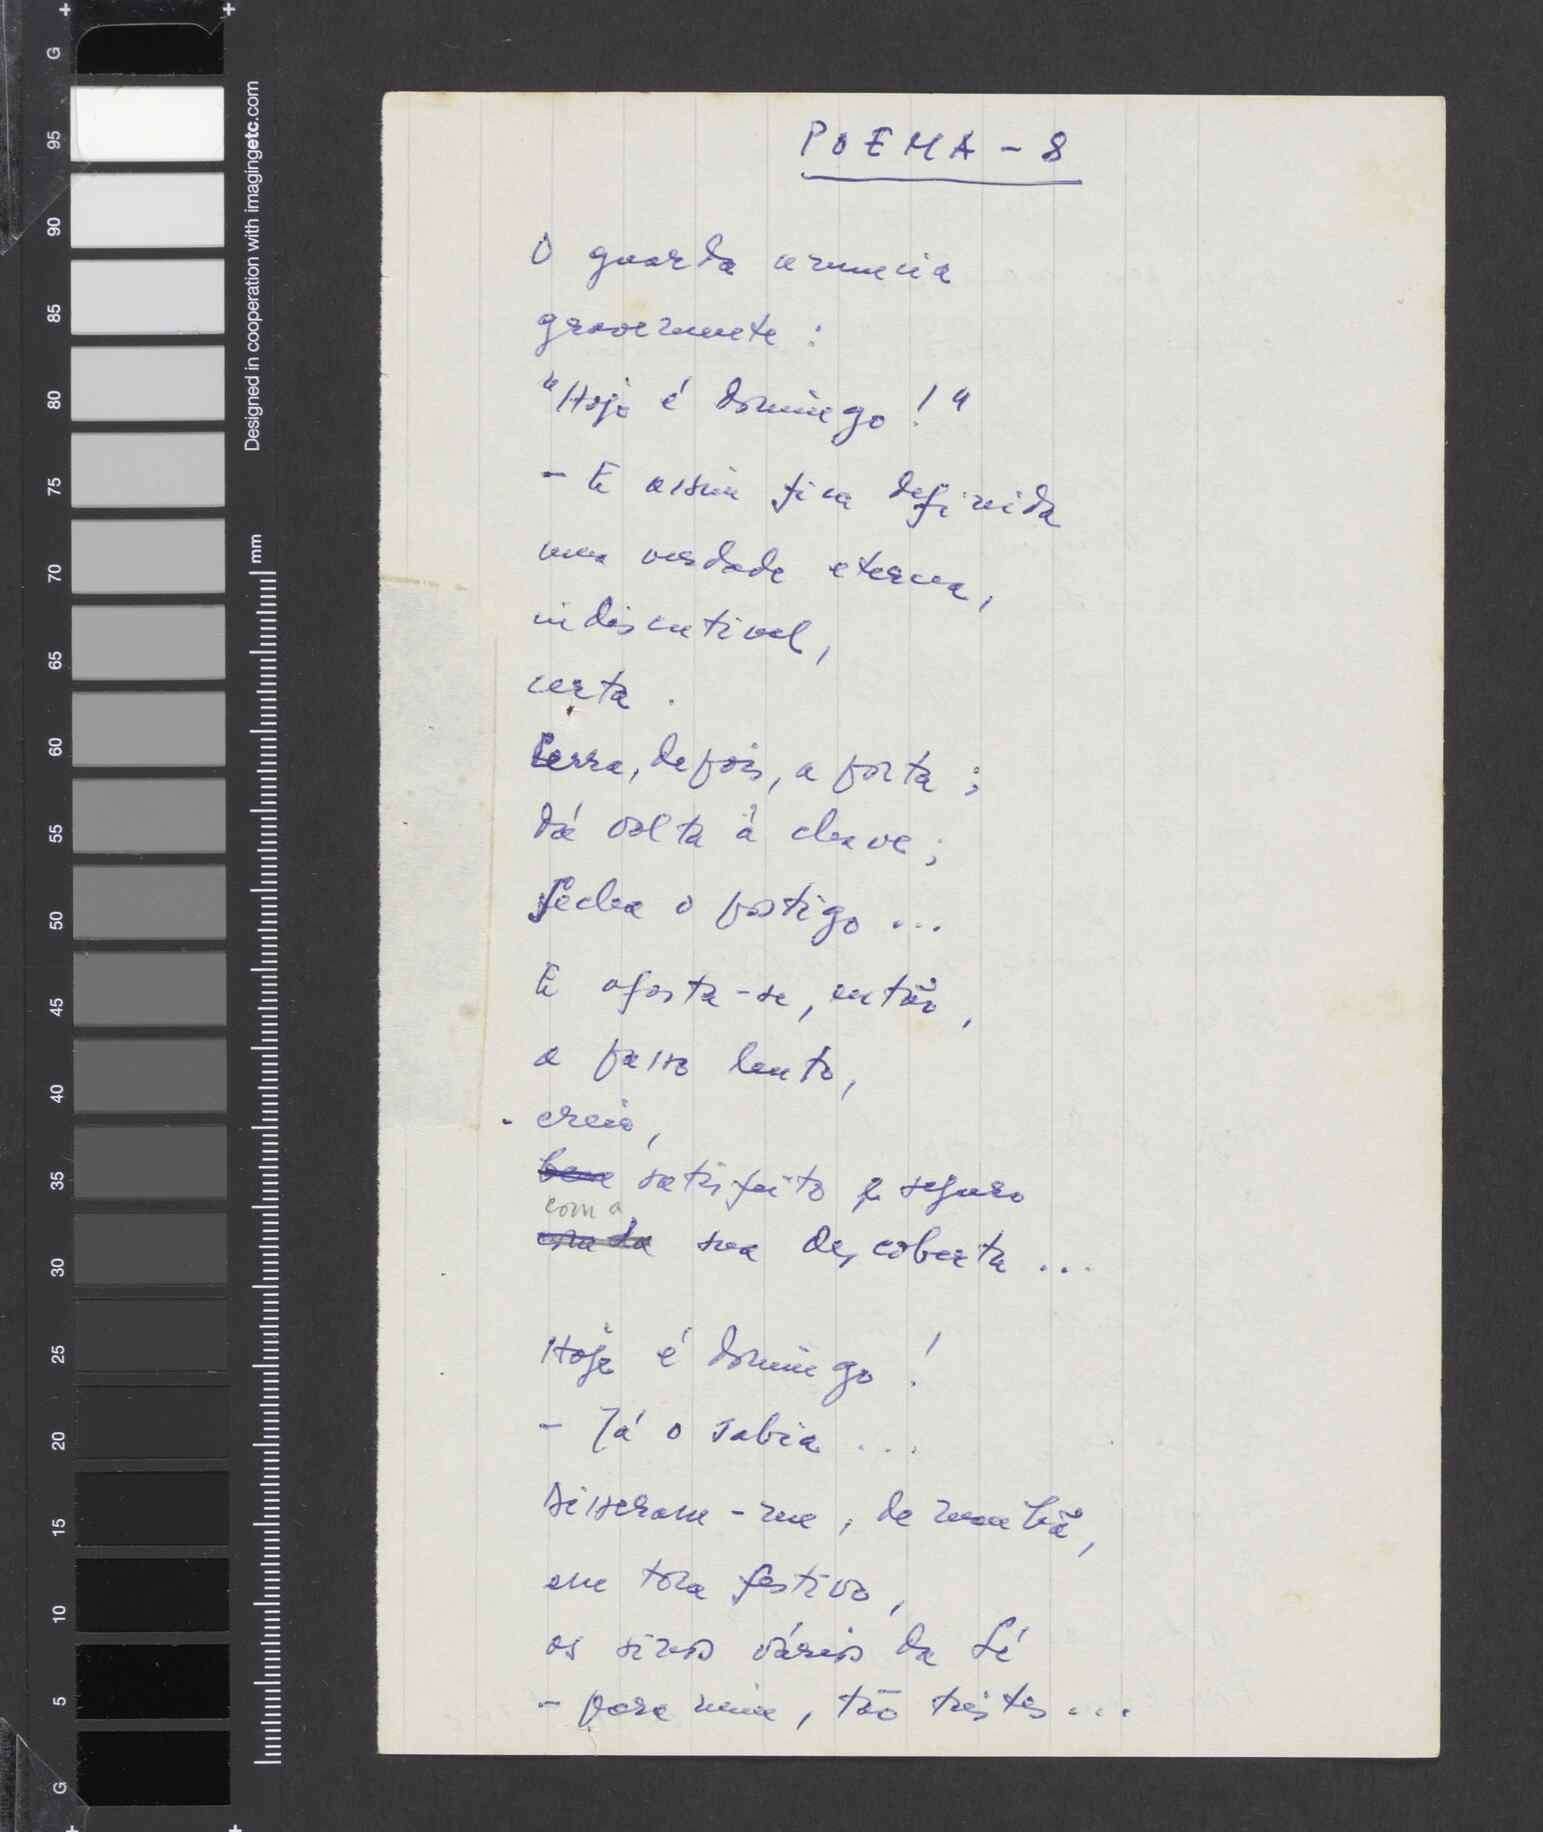 G
95
90
85
80
75
70
65
60
55
50
45
40
35
30
25
20
15
10
5
G
Designed in cooperation with imagingetc.com
mm
POEMA - 8
O guarda anuncia
gravemente :
"Hoje é domingo !"
- E assim fica definida
uma verdade eterna,
indiscutivel,
certa .
Cerra, depois, a porta ;
dá volta à chave ;
fecha o postigo ...
E afasta-se, então,
a passo lento,
creio,
bem satisfeito e seguro
com a
sua descoberta ...
Hoje é domingo !
- Já o sabia ...
Disseram-me, de manhã,
em tom festivo,
os sinos vários da Sé
- para mim, tão tristes ...